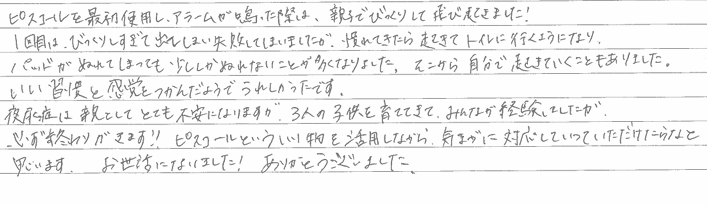 ピスコールを最初使用し、アラームが鳴った際は、親子でびっくりして飛び起きました!
1回目は、びっくりしすぎて出てしまい失敗してしまいましたが、慣れてきたら起きてトイレに行くようになり、
パッドがぬれてしまっても少ししかぬれないことが多くなりました。そこから自分で起きていくこともありました。
いい習慣と感覚をつかんだようでうれしかったです。
夜尿症は親としてとても不安になりますが、3人の子供を育ててきて、みんなが経験しましたが、
必ず終わりがきます!!ピスコールといういい物を活用しながら、気ながに対応していっていただけたらなと
思います。 お世話になりました! ありがとうございました。